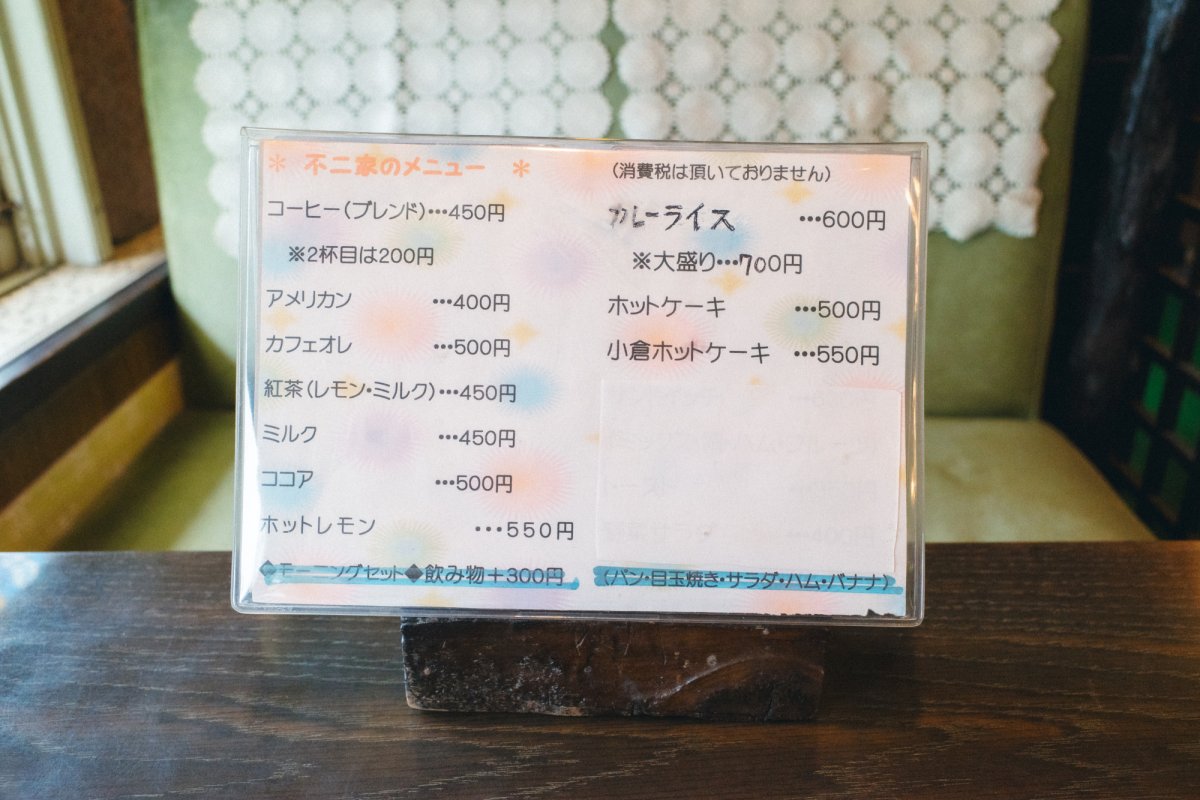 ＊ 不二家のメニュー ＊
コーヒー（ブレンド）…450円
※2杯目は200円
アメリカン …400円
カフェオレ …500円
紅茶（レモン・ミルク）…450円
ミルク …450円
ココア …500円
ホットレモン …550円
◆モーニングセット◆飲み物＋300円
（消費税は頂いておりません）
カレーライス …600円
※大盛り…700円
ホットケーキ …500円
小倉ホットケーキ …550円
（パン・目玉焼き・サラダ・ハム・バナナ）